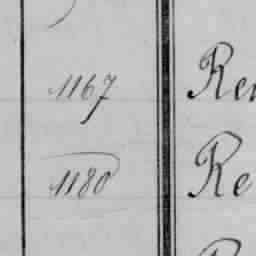 1167 Ren
1180 Re